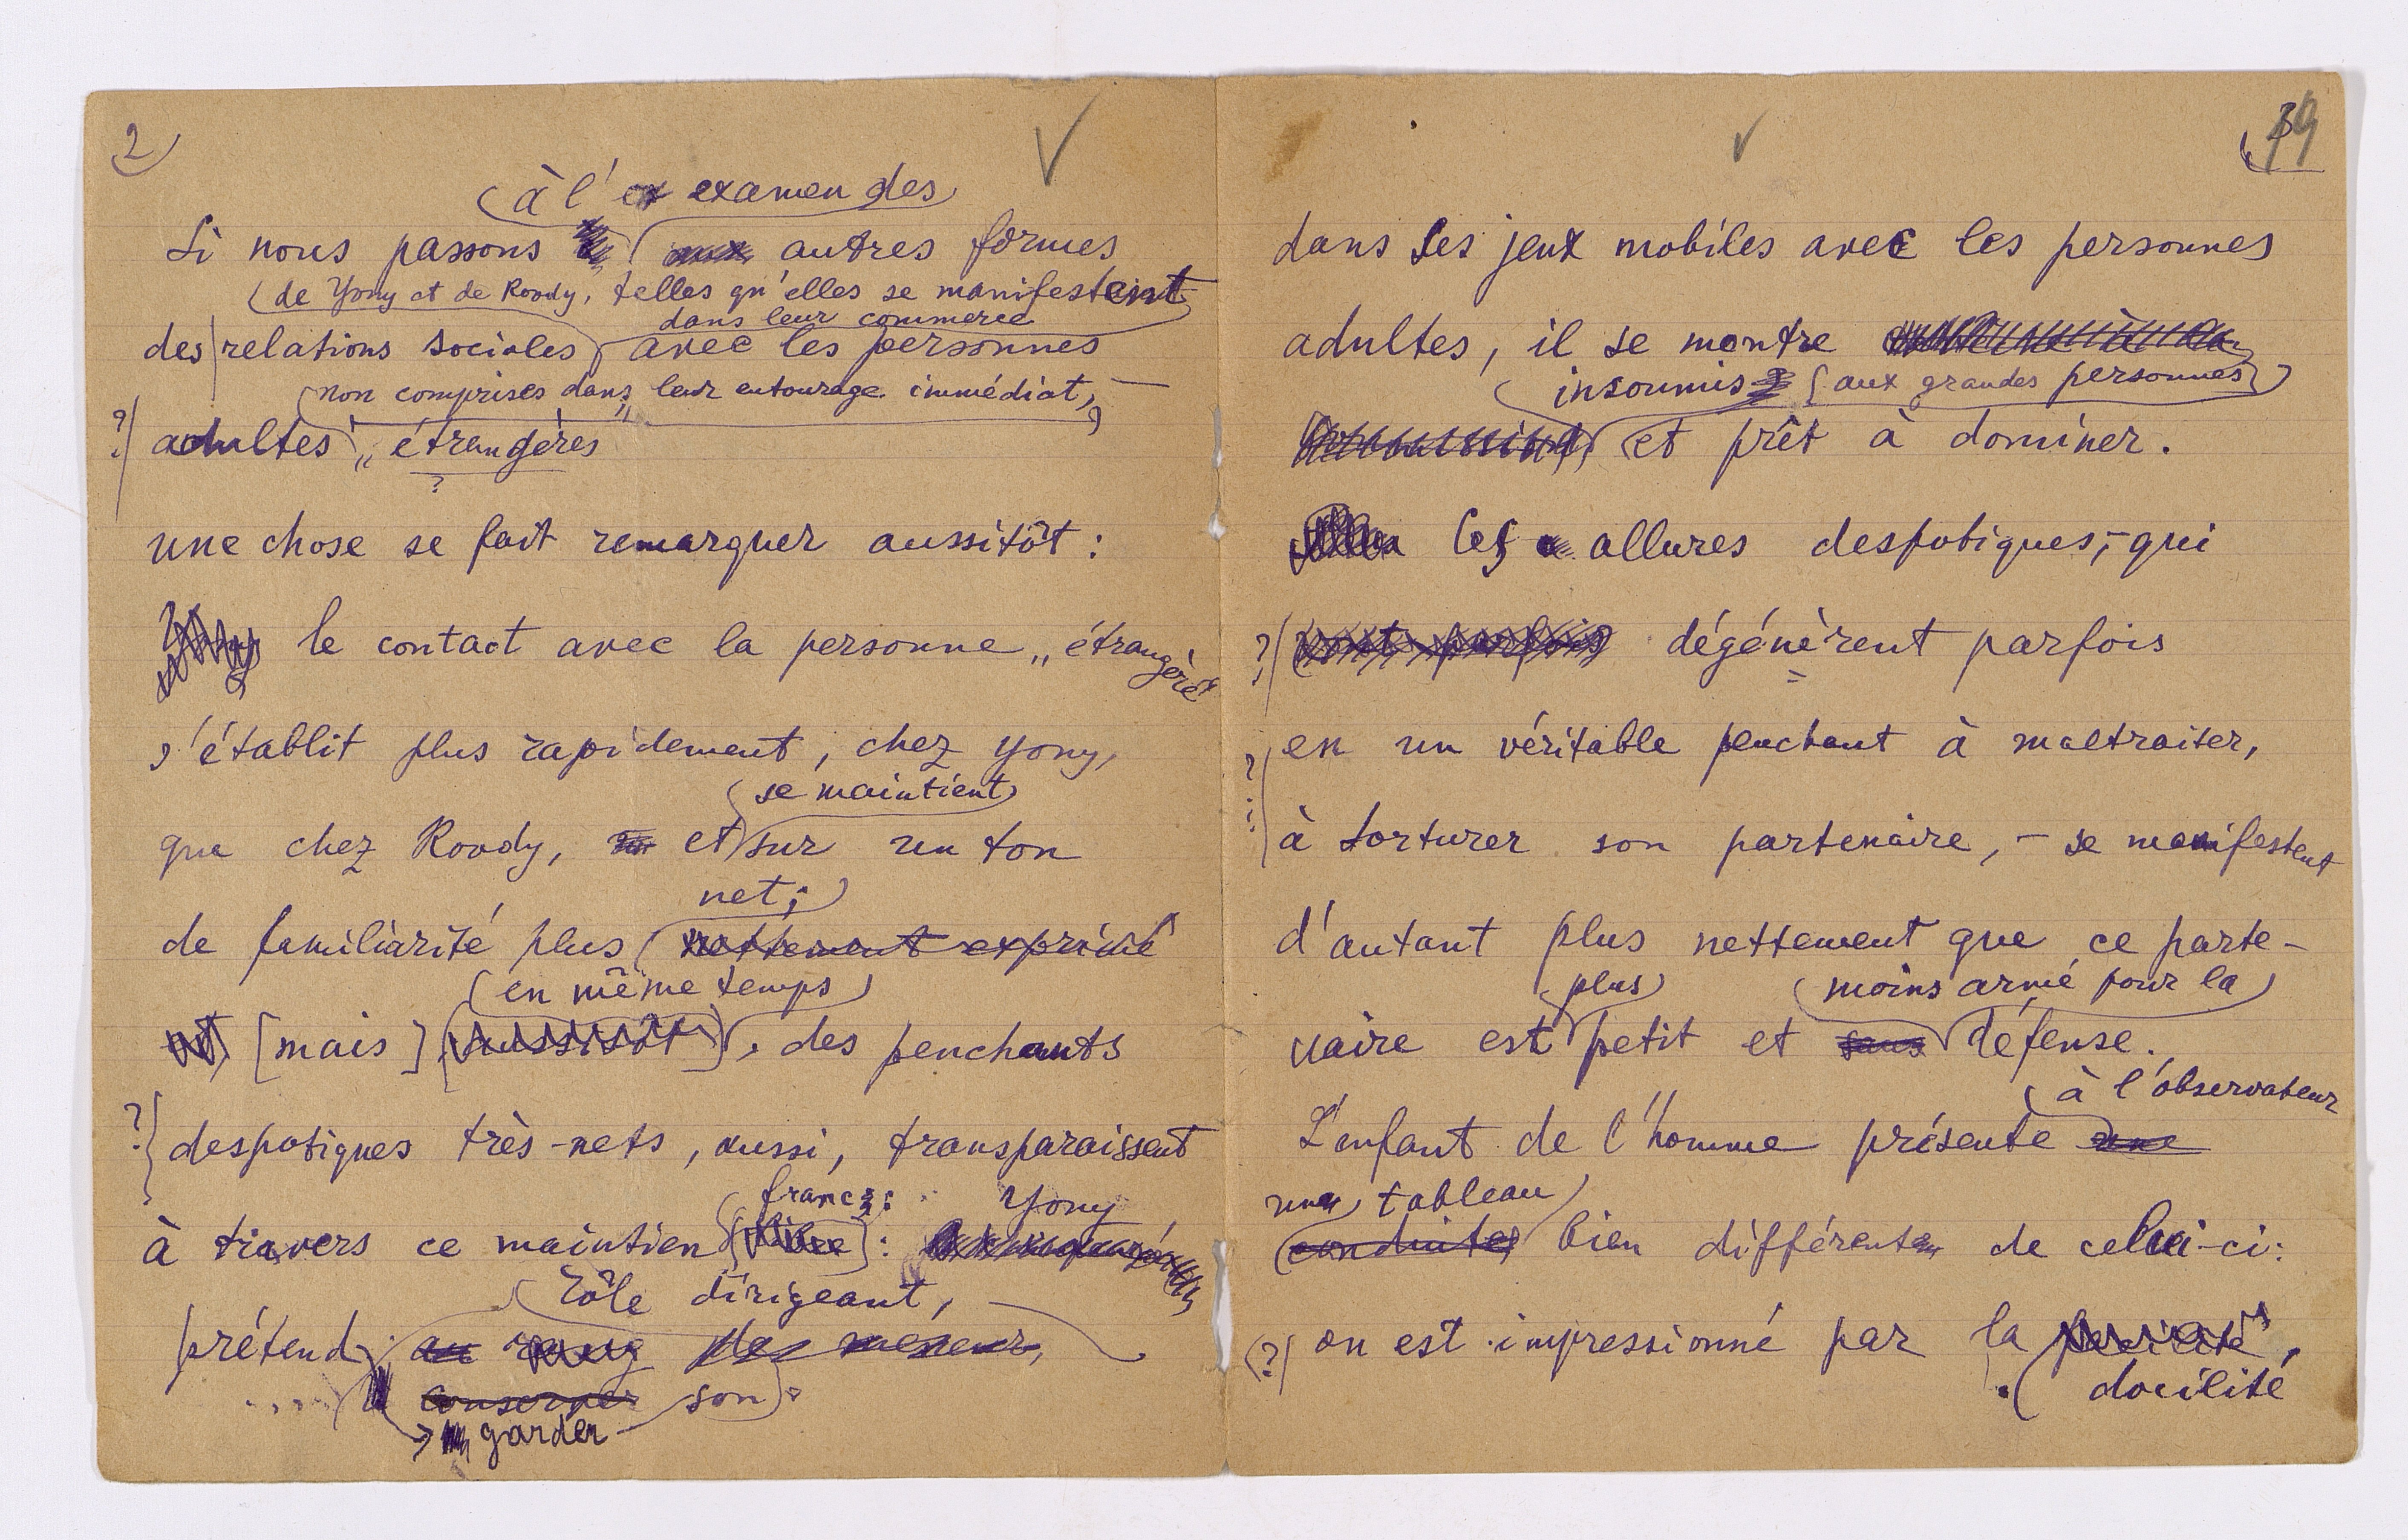 2
à l'ex examen des
Si nous passons aux autres formes
de Yony et de Roody, telles qu'elles se manifestent
dans leur commerce
des relations sociales avec les personnes
non comprises dans leur entourage immédiat, —
?
adultes „étrangères"
?
une chose se fait remarquer aussitôt :
le contact avec la personne „étrangère"
s'établit plus rapidement, chez Yony,
se maintient
que chez Roody, et sur un ton
net;
de familiarité plus nettement exprimé
en même temps
[mais] [aussitôt], des penchants
?
despotiques très-nets, aussi, transparaissent
franc: Yony
à travers ce maintien [libre] :
rôle dirigeant,
prétend au rang des meneur,
conserver son
garder
39
dans ses jeux mobiles avec les personnes
adultes, il se montre
insoumis (aux grandes personnes)
et prêt à dominer.
Ces allures despotiques, - qui
?
sont parfois dégénèrent parfois
en un véritable penchant à maltraiter,
?
à torturer son partenaire, - se manifestent
d'autant plus nettement que ce parte-
plus moins armé pour la
naire est petit et sans défense.
à l'observateur
L'enfant de l'homme présente une
un tableau
conduite bien différent de celui-ci:
(?)
on est impressionné par la
docilité